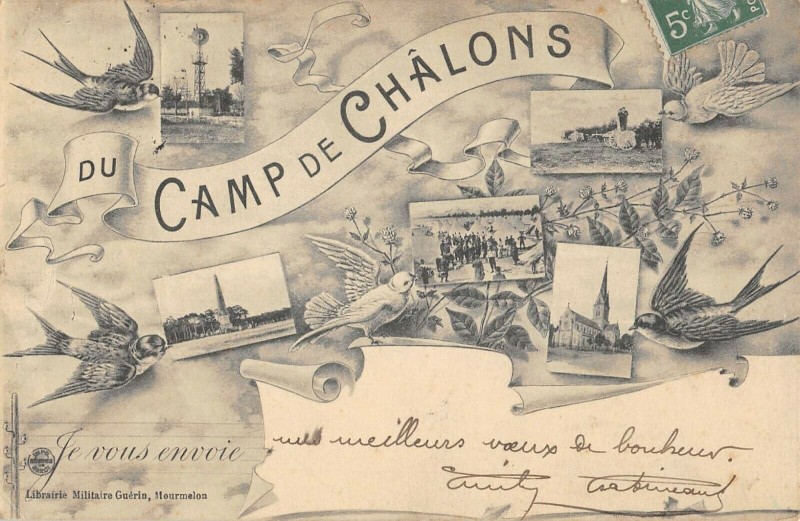 5c
DU CAMP DE CHÂLONS
Je vous envoie
mes meilleurs vœux de bonheur.
Librairie Militaire Guérin, Mourmelon